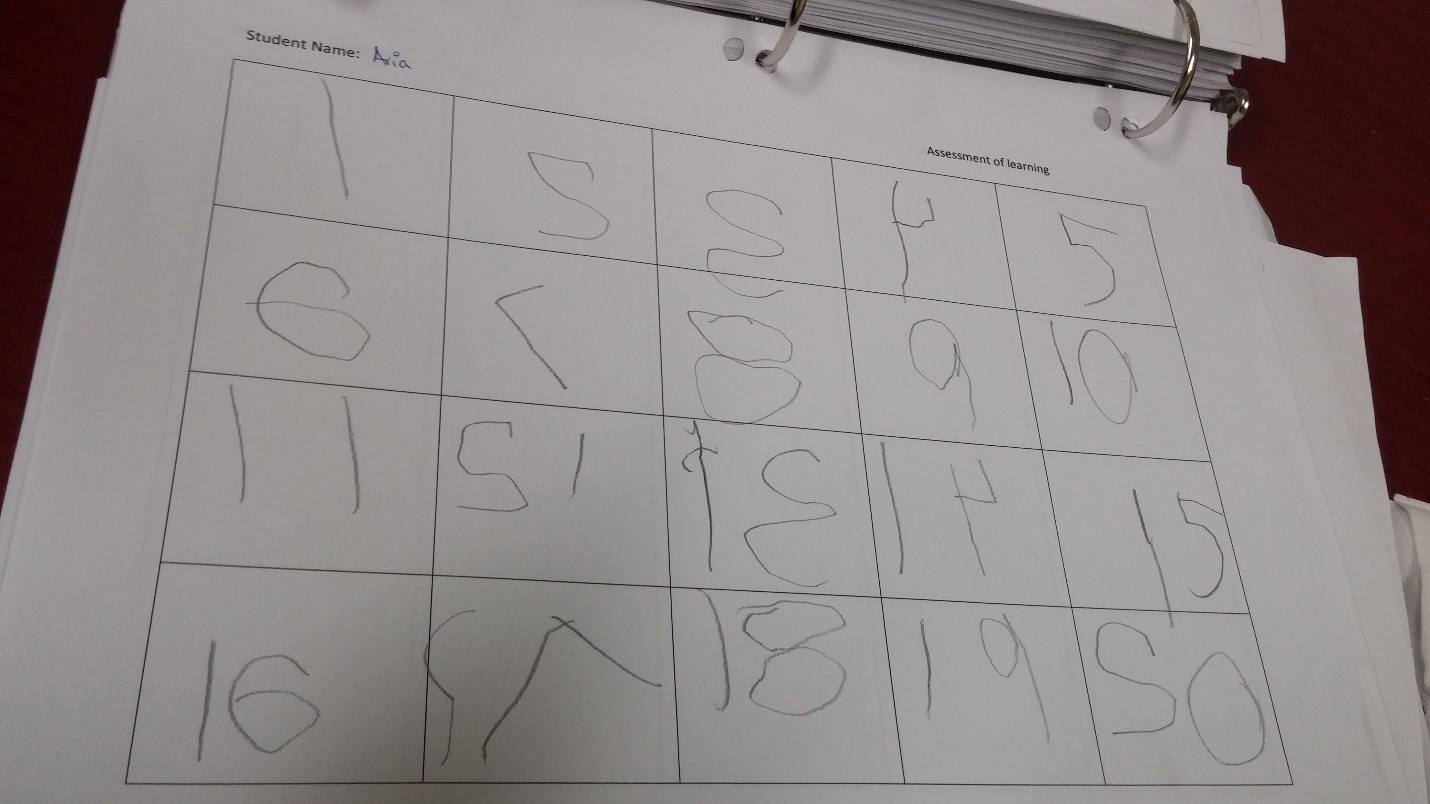 Student Name: Aria
Assessment of learning
1 2 3 4 5
6 7 8 9 10
11 21 13 14 15
16 18 19 20